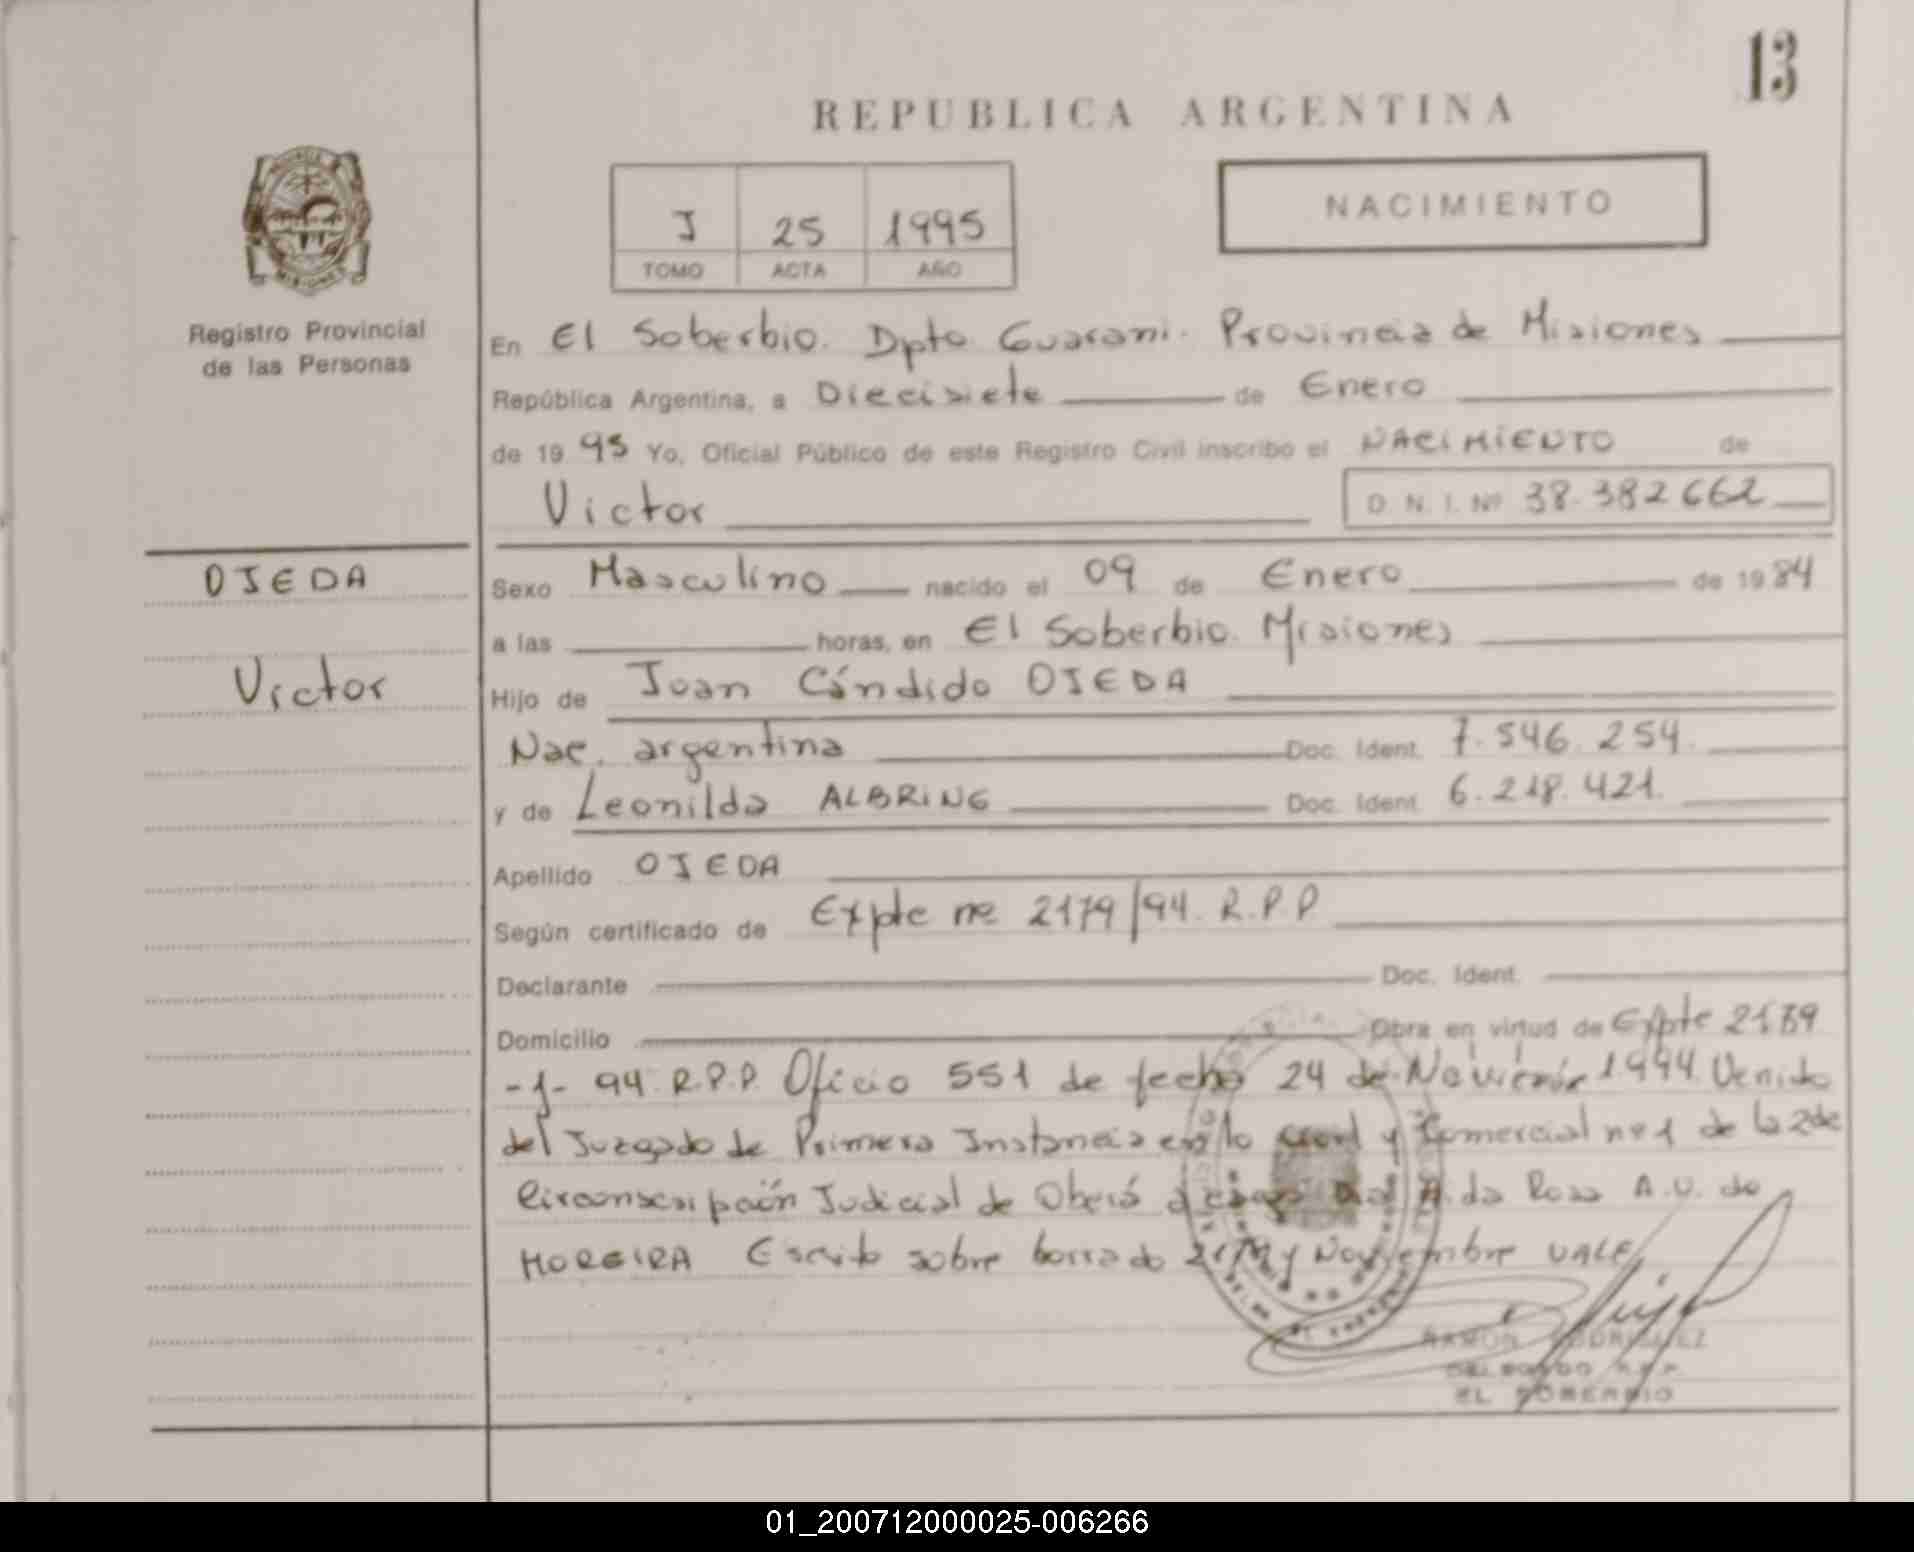 13
REPUBLICA ARGENTINA
NACIMIENTO
J 25 1995
TOMO ACTA AÑO
Registro Provincial
de las Personas
En El Soberbio. Dpto Guarani. Provincia de Misiones
República Argentina, a Diecisiete de Enero
de 19 95 Yo, Oficial Público de este Registro Civil inscribo el NACIMIENTO de
Victor D. N. I. Nº 38.382 662
OJEDA
Victor
Sexo Masculino nacido el 09 de Enero de 19 84
a las horas, en El Soberbio. Misiones
Hijo de Juan Cándido OJEDA
Nac. argentina Doc. Ident. 7.546.254.
y de Leonilda ALBRING Doc. Ident. 6.218.421.
Apellido OJEDA
Según certificado de Expte nº 2179/94. R.P.P
Declarante Doc. Ident.
Domicilio Obra en virtud de Expte 2179
-J- 94. R.P.P. Oficio 551 de fecha 24 de Noviembre 1994. Venido
del Juzgado de Primera Instancia en lo Civil y Comercial nº 1 de la 2da
Circunscripción Judicial de Oberá a cargo Dra A. da Rosa A.U. do
MOREIRA Escrito sobre borrado 2179 y Noviembre VALE
RAMON RODRIGUEZ
DELEGADO R.P.P.
EL SOBERBIO
01_200712000025-006266